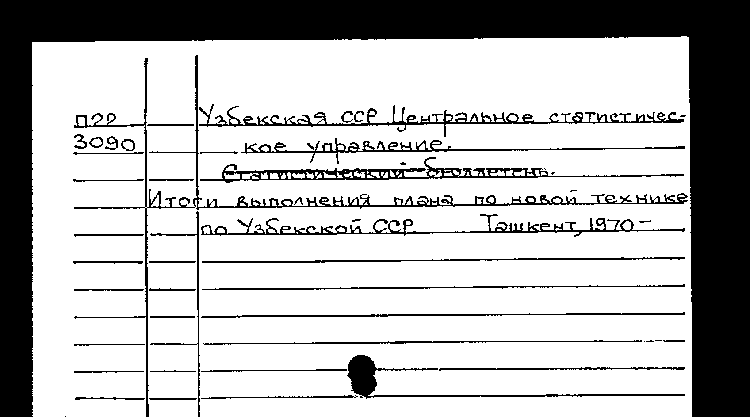 П22 Узбекская ССР Центральное статистичес-
3090 кое управление.
Статистический бюллетень.
Итоги выполнения плана по новой технике
по Узбекской ССР Ташкент, 1970-